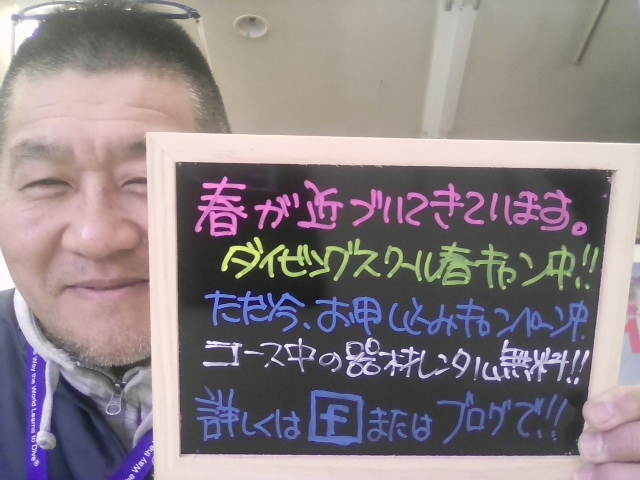 春が近づいてきています。
ダイビングスクール春キャン中!!
ただ今、お申しこみキャンペーン中
コース中の器材レンタル無料!!
詳しくは f またはブログで!!
the Way the World Learns to Dive®
the Way the